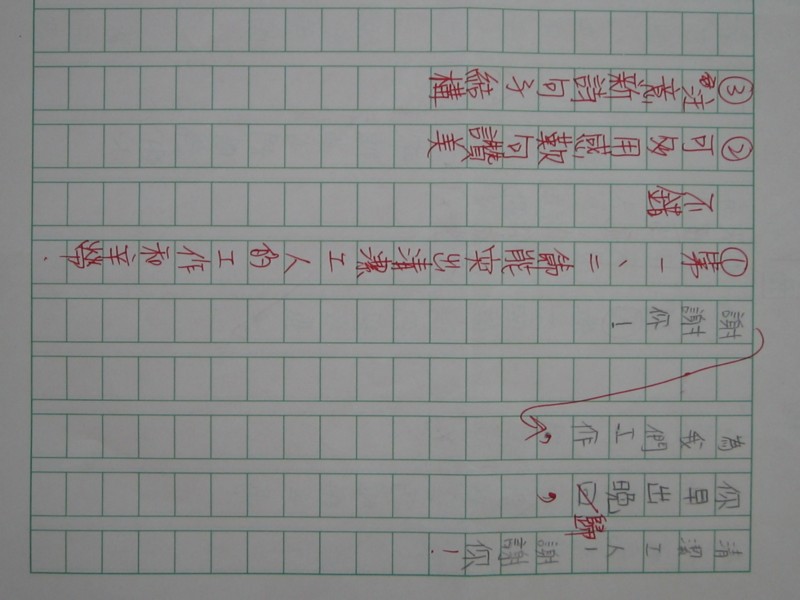 清潔工人！謝謝你！
你早出晚歸，
為我們工作，
謝謝你！
①第一、二節能突出清潔工人的工作和辛勞.
不錯
②可多用感歎句讚美
③注意新詩句子結構